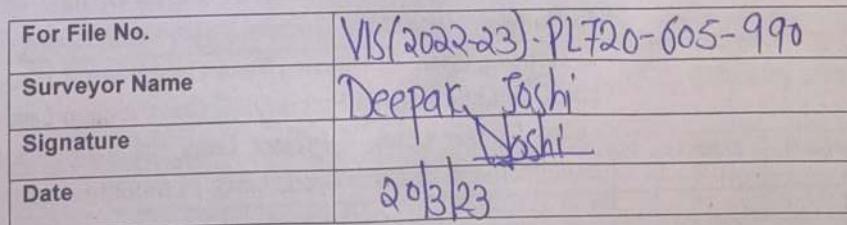 For File No. VIS(2022-23)-PL720-605-990
Surveyor Name Deepak Joshi
Signature DJoshi
Date 20/3/23